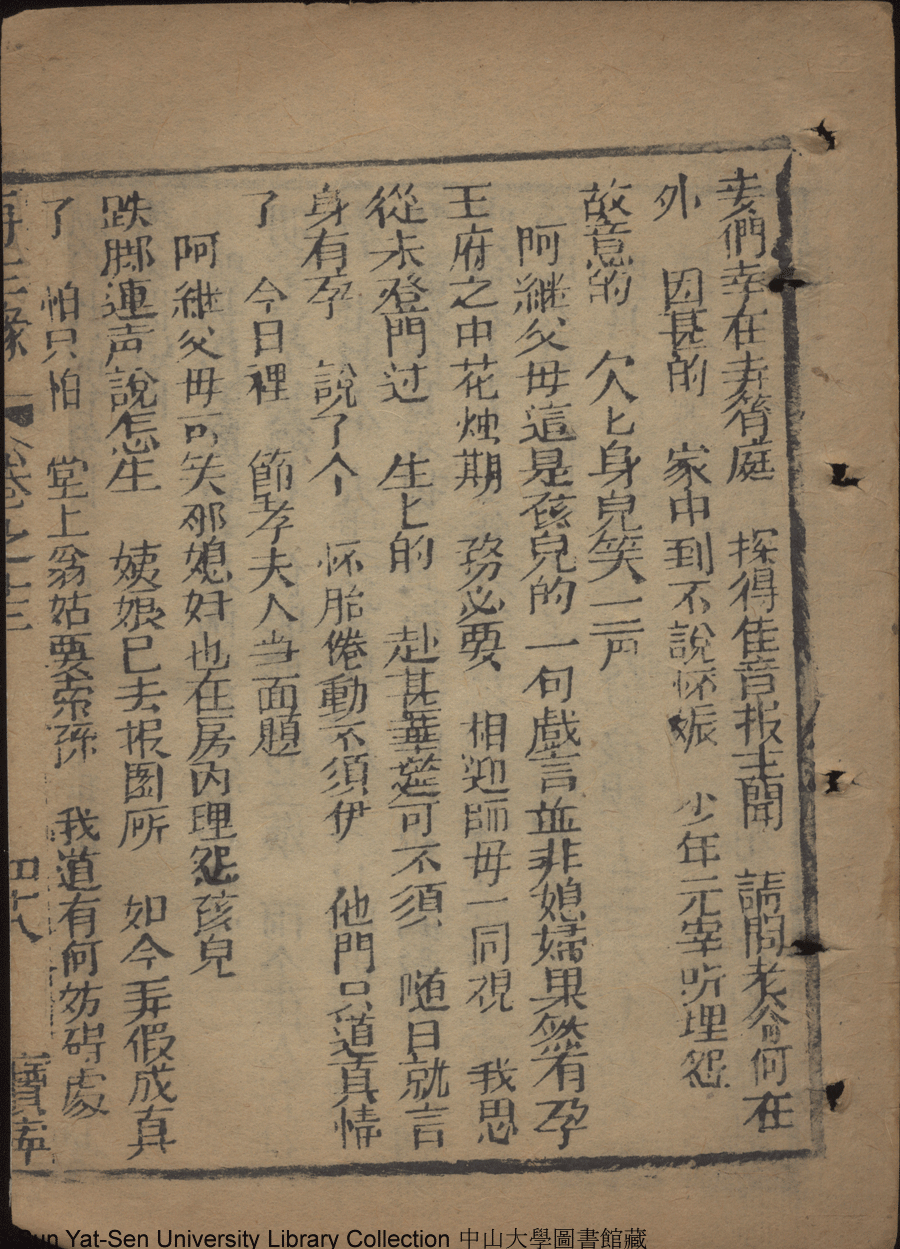 妻們幸在妻宵庭　探得佳音报主聞　請問老爷何在
外　因甚的　家中到不說怀娠　少年元宰听埋怨
故意的　欠匕身兒笑一声
阿繼父毋這是孩兒的一句戲言並非媳婦果然有孕
王府之中花烛期　務必要　相迎師毋一同視　我思
從未登門过　生匕的　赴甚華筵可不須　随日就言
身有孕　說了个　怀胎倦動不須伊　他門只道真情
了　今日裡　節孝夫人当面題
阿継父毋可笑那媳妇也在房内理怨孩兒
跌脚連声說怎生　姨娘巳去报園所　如今弄假成真
了　怕只怕　堂上翁姑要索孫　我道有何妨碍處
再生緣　卷之十三　四十八　寳寧
Sun Yat-Sen University Library Collection 中山大學圖書館藏